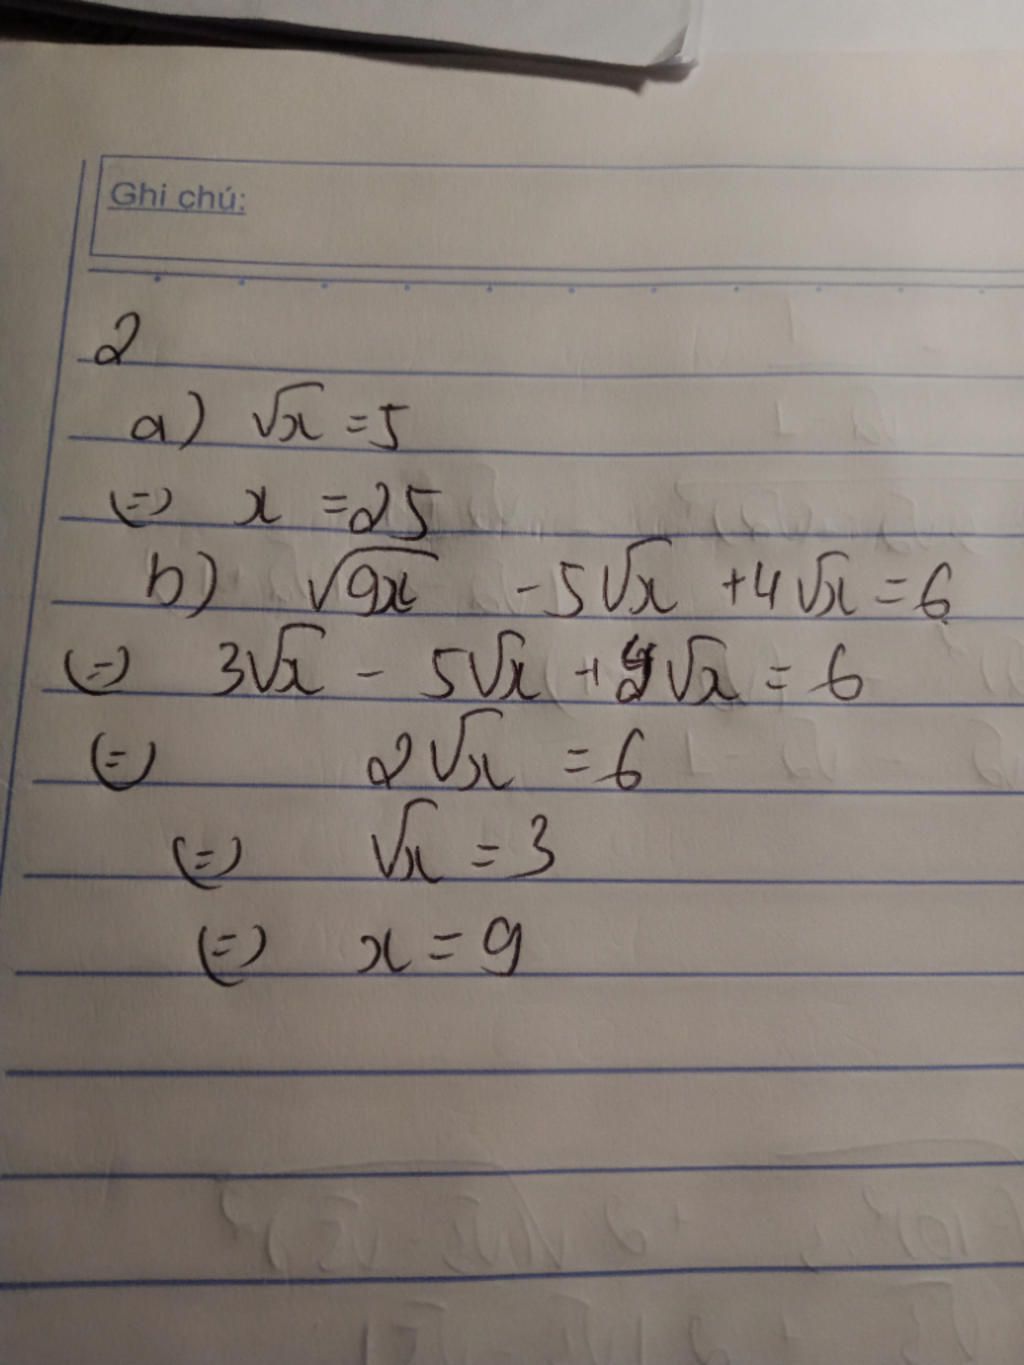 Ghi chú:
2
a) √x = 5
(=) x = 25
b) √9x - 5√x + 4√x = 6
(=) 3√x - 5√x + 4√x = 6
(=) 2√x = 6
(=) √x = 3
(=) x = 9